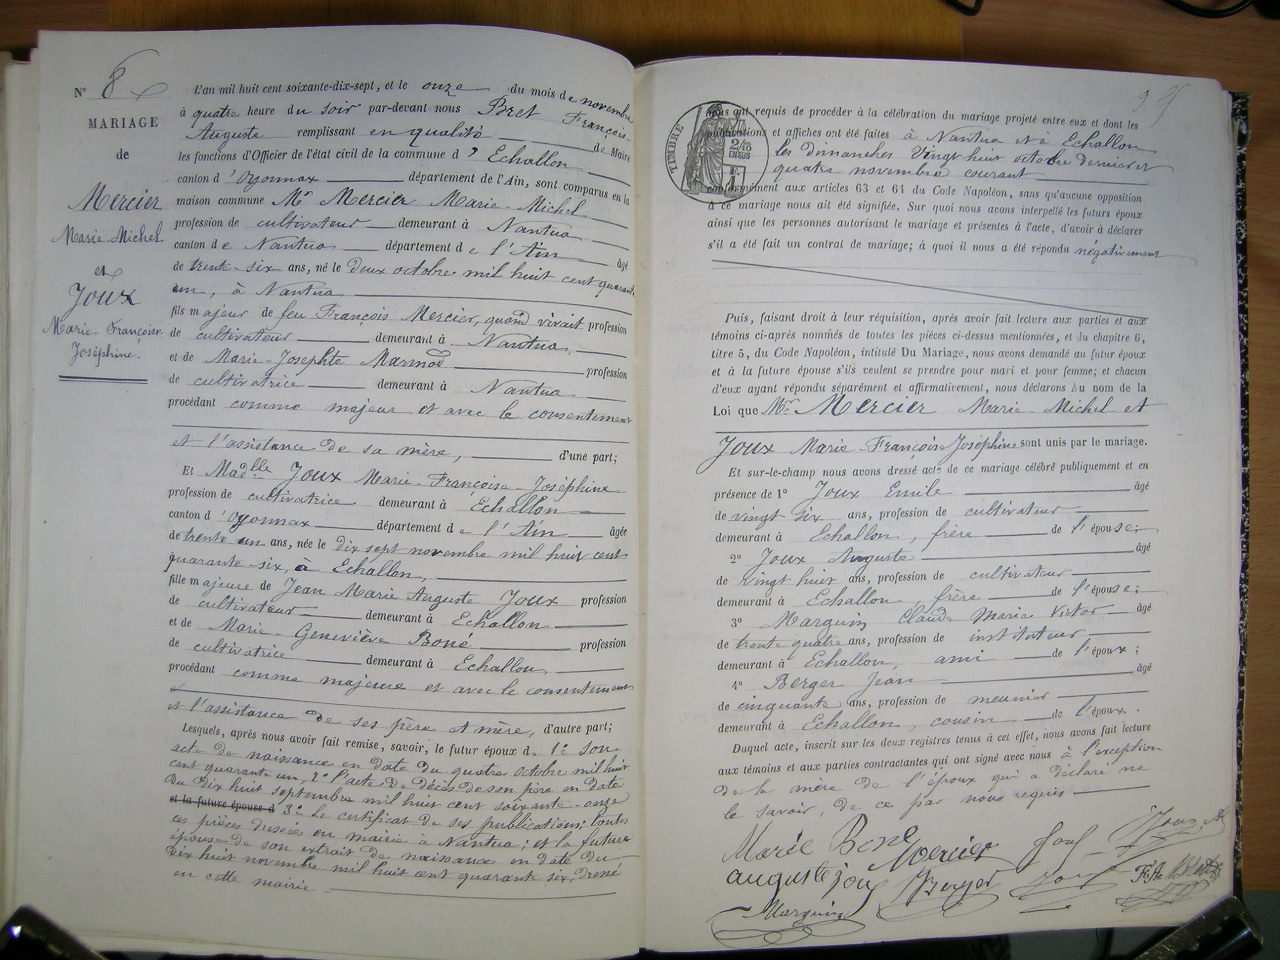 N° 8
MARIAGE
de
Mercier
Marie Michel
et
Joux
Marie Françoise
Joséphine.
L'an mil huit cent soixante-dix-sept, et le onze du mois de novembre
à quatre heure du soir par-devant nous Bret François
Auguste remplissant en qualité de Maire
les fonctions d'Officier de l'état civil de la commune d'Echallon
canton d'Oyonnax département de l'Ain, sont comparus en la
maison commune Mr Mercier Marie-Michel
profession de cultivateur demeurant à Nantua
canton de Nantua département de l'Ain âgé
de trente-six ans, né le deux octobre mil huit cent quarante
un, à Nantua
fils majeur de feu François Mercier, quand vivait profession
de cultivateur demeurant à Nantua,
et de Marie-Josephte profession
de cultivatrice demeurant à Nantua
procédant comme majeur et avec le consentement
et l'assistance de sa mère, d'une part;
Et Madlle Joux Marie-Françoise-Joséphine
profession de cultivatrice demeurant à Echallon
canton d'Oyonnax département de l'Ain âgée
de trente un ans, née le dix sept novembre mil huit cent
quarante-six, à Echallon,
fille majeure de Jean Marie Auguste Joux profession
de cultivateur demeurant à Echallon
et de Marie-Geneviève Boné profession
de cultivatrice demeurant à Echallon,
procédant comme majeure et avec le consentement
et l'assistance de ses père et mère, d'autre part;
Lesquels, après nous avoir fait remise, savoir, le futur époux d. 1° son
acte de naissance en date du quatre octobre mil huit
cent quarante un, 2° l'acte de décès de son père en date
du dix huit septembre mil huit cent soixante-onze
et la future épouse d 3° Le certificat de ses publications; toutes
ces pièces en mairie à Nantua; et la future
épouse de son extrait de naissance en date du
dix huit novembre mil huit cent quarante six,
en cette mairie
TIMBRE
nous ont requis de procéder à la célébration du mariage projeté entre eux et dont les
publications et affiches ont été faites à Nantua et à Echallon
les dimanches vingt huit octobre dernier et
quatre novembre courant
conformément aux articles 63 et 64 du Code Napoléon, sans qu'aucune opposition
à ce mariage nous ait été signifiée. Sur quoi nous avons interpellé les futurs époux
ainsi que les personnes autorisant le mariage et présentes à l'acte, d'avoir à déclarer
s'il a été fait un contrat de mariage; à quoi il nous a été répondu négativement
Puis, faisant droit à leur réquisition, après avoir fait lecture aux parties et aux
témoins ci-après nommés de toutes les pièces ci-dessus mentionnées, et du chapitre 6,
titre 5, du Code Napoléon, intitulé Du Mariage, nous avons demandé au futur époux
et à la future épouse s'ils veulent se prendre pour mari et pour femme; et chacun
d'eux ayant répondu séparément et affirmativement, nous déclarons au nom de la
Loi que Mr Mercier Marie Michel et
Joux Marie-Françoise Joséphine sont unis par le mariage.
Et sur-le-champ nous avons dressé acte de ce mariage célébré publiquement et en
présence de 1° Joux Emile âgé
de vingt six ans, profession de cultivateur
demeurant à Echallon, frère de l'épouse;
2° Joux Auguste âgé
de vingt huit ans, profession de cultivateur
demeurant à Echallon, frère de l'épouse;
3° Marguin Claude Marie Victor âgé
de trente quatre ans, profession de instituteur
demeurant à Echallon, ami de l'époux;
4° Berger Jean âgé
de cinquante ans, profession de meunier
demeurant à Echallon, cousin de l'époux.
Duquel acte, inscrit sur les deux registres tenus à cet effet, nous avons fait lecture
aux témoins et aux parties contractantes qui ont signé avec nous à l'exception
de la mère de l'époux qui a déclaré ne
le savoir, de ce par nous requis
Marie Bone Mercier Joux
auguste joux Berger Joux
Marguin